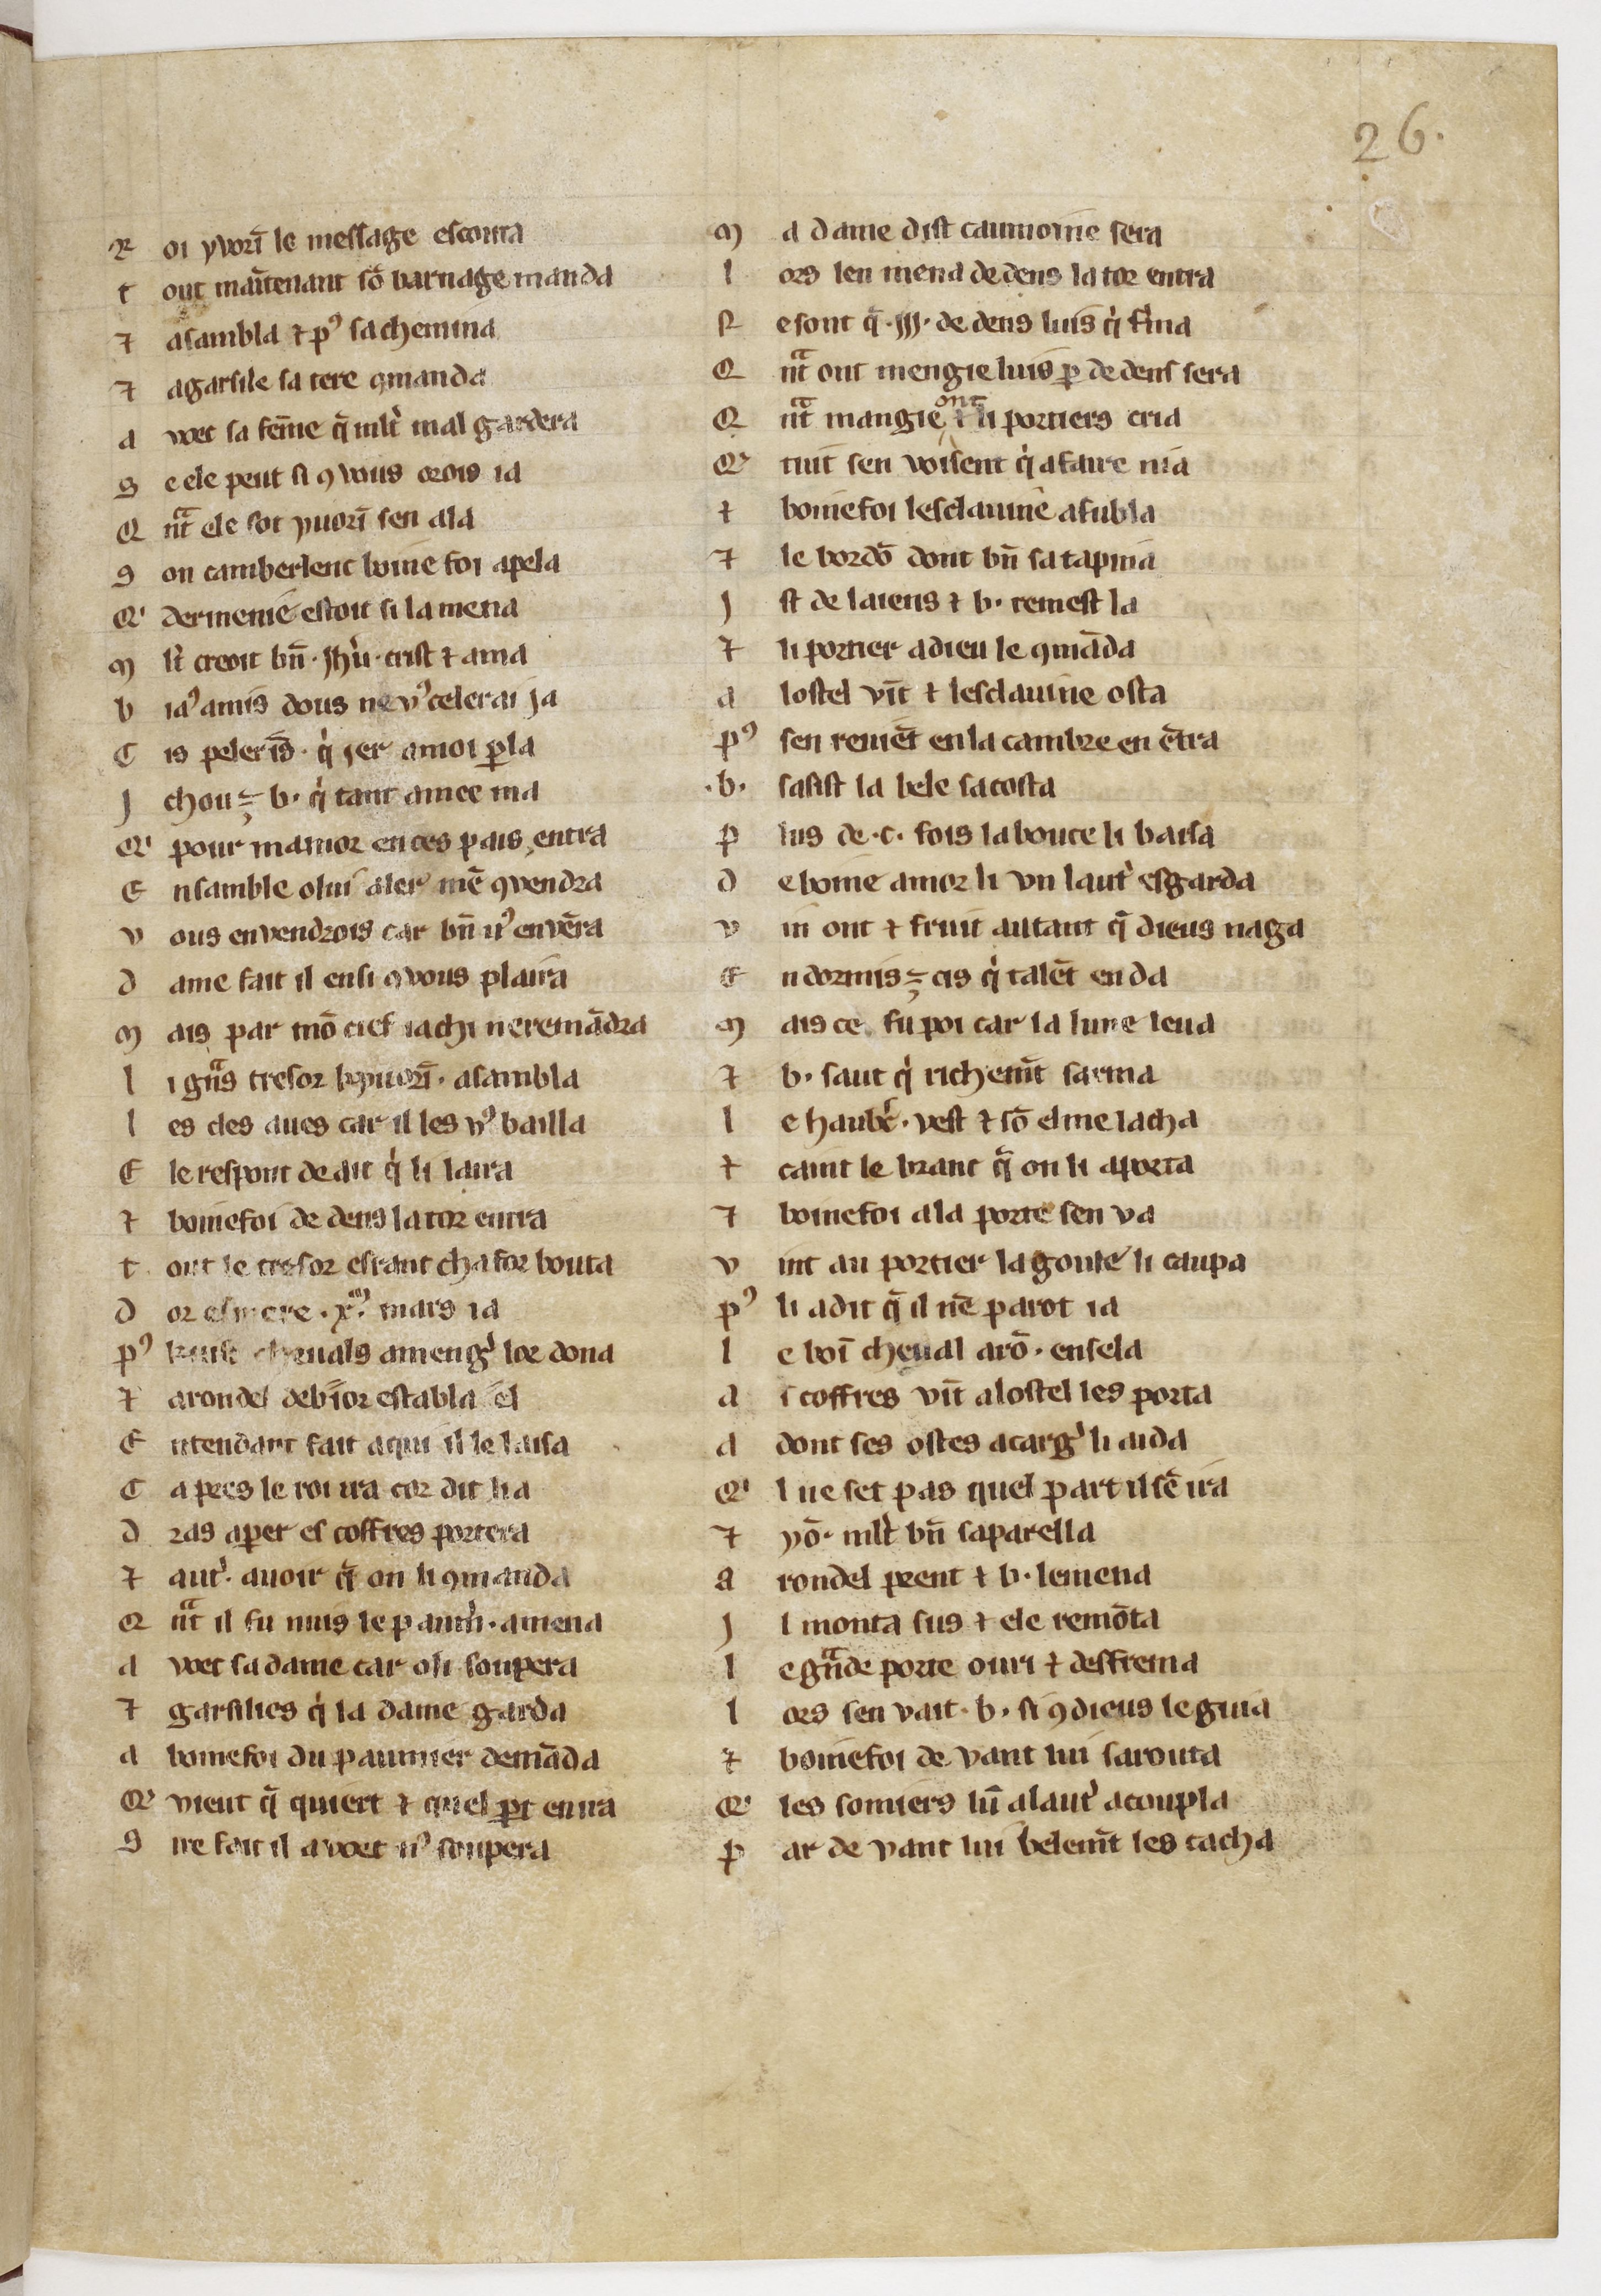 26.
R oi yvorī le message escouta
t out maītenant sō barnage manda
⁊ asambla ⁊ pꝰ sachemina
⁊ agarsile sa tere ꝯmanda
a voec sa fēme q̃ mlt̕ mal gardera
S e ele peut si ꝯ vous orois ia
Q nͣt ele sot yuorī sen ala
S on camberlenc boinefoi apela
Q' dermenie estoit si la mena
M lt̕ creoit bn̄ · jhu̕ · crist ⁊ ama
b iaꝰ amis dous ne vꝰ celerai ja
C is pelerīs · q̍ jer amoi ꝑla
J chou ÷ b · q̍ tant amee ma
Q' pour mamor en ces pais entra
E nsamble o lui aler mē ꝯvendra
v ous en vendrois car bn̄ vꝰ en vēra
d ame fait il ensi ꝯ vous plaira
M ais par mō cief iachi ne remādra
l i gnͣs tresor yuorī · asambla
l es cles aues car il les vꝰ bailla
E le respont de dit q̍ li laira
⁊ boinefoi de dens la tor entra
t out le tresor esrant cha for bouta
d or esmere · xͫ · mars ia
pꝰ chenals a meng̕ lor dona
⁊ arondel debior establa el
E ntendant fait aqui il le laisa
C apres le roi ira cor dit lia
d ras aper es coffres portera
⁊ aut̕ · auoir q̃ on li ꝯmanda
Q nͣt il fu nuis le paum̕ · amena
a voec sa dame car o li soupera
⁊ garsilies q̍ la dame garda
a boinefoi du paumier demāda
Q' vient q̃ quiert ⁊ quel ꝑt en ira
S ire fait il avoec vꝰ soupera
M a dame dist caunoine sera
l ors len mena de dens la tor entra
S e sont q̃ · jjj · de dens luis q̍ f̕ma
Q nͣt ont mengie luis ꝑ de dens sera
Q nͣt mangie ont ⁊ li portiers cria
Q' tuit sen voisent q̍ afaire nia
⁊ boinefoi lesclauine afubla
⁊ le bordō dont bn̄ sa tapina
J st de laiens ⁊ b · remest la
⁊ li portier adieu le ꝯmāda
a lostel vīt ⁊ lesclauine osta
pꝰ sen reuiēt en la cambre en ētra
· b · sasist la bele sacosta
p lus de · c · fois la bouce li baisa
d e boine amor li vn laut̕ esgarda
v in ont ⁊ fruit autant q̃ dieus naga
E ndormis ÷ cis q̍ talēt en da
M ais ce fu poi car la lune leua
⁊ b · saut q̍ richem̄t sarma
l e haub̕c · vest ⁊ sō elme lacha
⁊ caint le branc q̃ on li aporta
⁊ boinefoi a la porte sen va
v int au portier la goule li caupa
pꝰ li a dit q̃ il nē parot ia
l e boī cheual arō · ensela
a s coffres vīt a lostel les porta
a dont ses ostes a carg̕ li aida
Q' l ne set pas quel part il sē ira
⁊ yō · mlt̕ bn̄ saparella
a rondel prent ⁊ b · lemena
J l monta sus ⁊ ele remōta
l e gnͣde porte ouri ⁊ desfrema
l ors sen vait · b · si ꝯ dieus le guia
⁊ boinefoi de vant lui sarouta
Q' les somiers lū a laut̕ acoupla
p ar de vant lui belem̄t les cacha